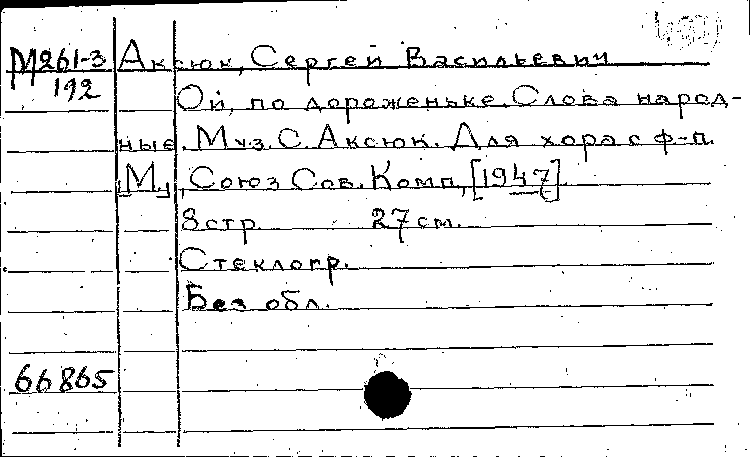 М261-3 Аксюк, Сергей Васильевич
192
Ой, по дороженьке. Слова народ-
ные. Муз. С. Аксюк. Для хора с ф-п.
[М.], Союз Сов. Комп., [1947].
8 стр. 27 см.
Стеклогр.
Без обл.
66865